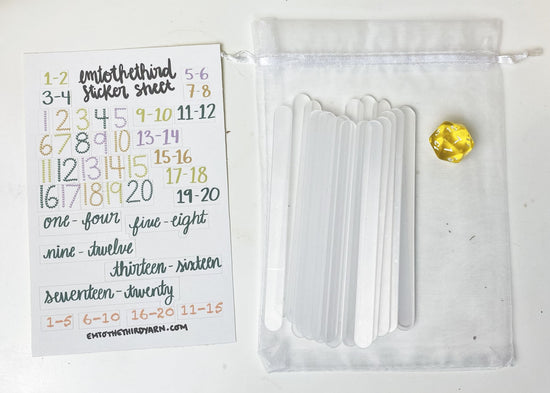 1-2 emtothethird 5-6
3-4 sticker sheet 7-8
1 2 3 4 5 9-10 11-12
6 7 8 9 10 13-14
11 12 13 14 15 15-16
17-18
16 17 18 19 20 19-20
one-four five-eight
nine-twelve
thirteen-sixteen
seventeen-twenty
1-5 6-10 16-20 11-15
EMTOTHETHIRDYARN.COM